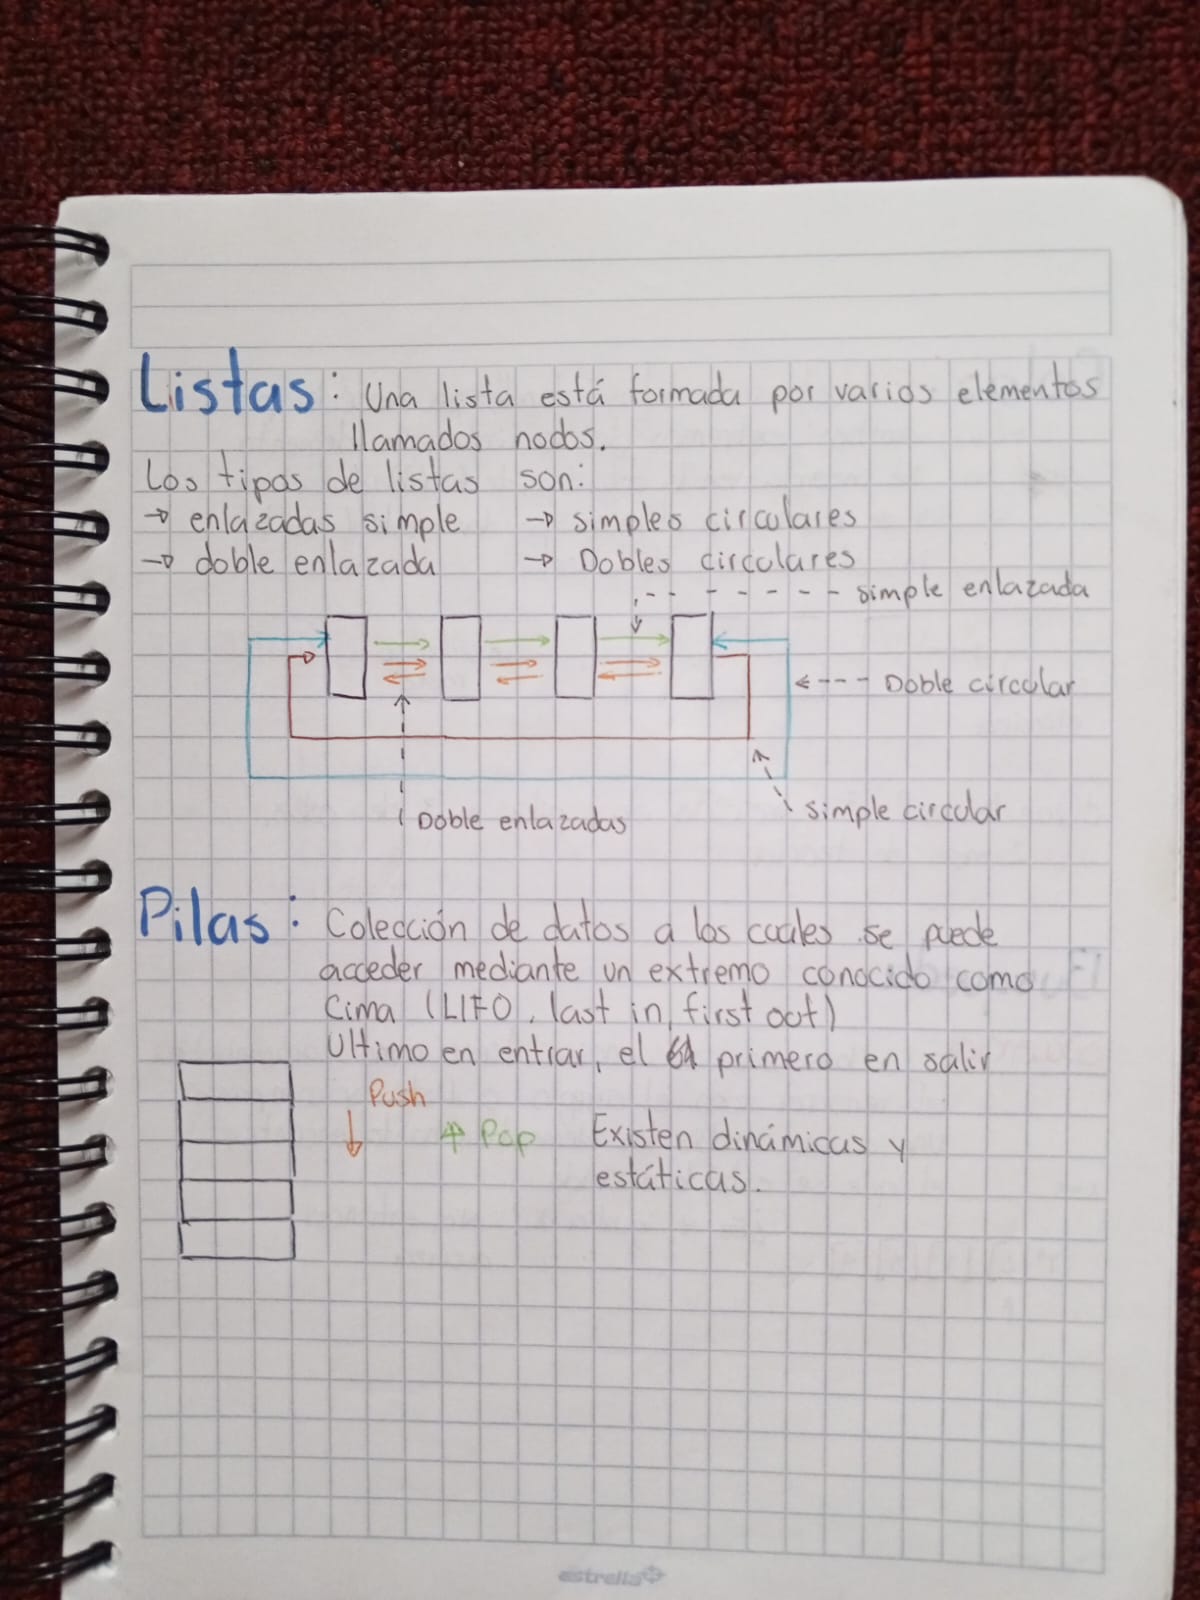 Listas: Una lista está formada por varios elementos
llamados nodos.
Los tipos de listas son:
→ enlazadas simple → simples circulares
→ doble enlazada → Dobles circulares
simple enlazada
Doble circular
simple circular
Doble enlazadas
Pilas: Colección de datos a los cuales se puede
acceder mediante un extremo conocido como
Cima (LIFO, last in, first out)
Ultimo en entrar, el primero en salir
Push
↑ Pop Existen dinámicas y
estáticas.
estrella